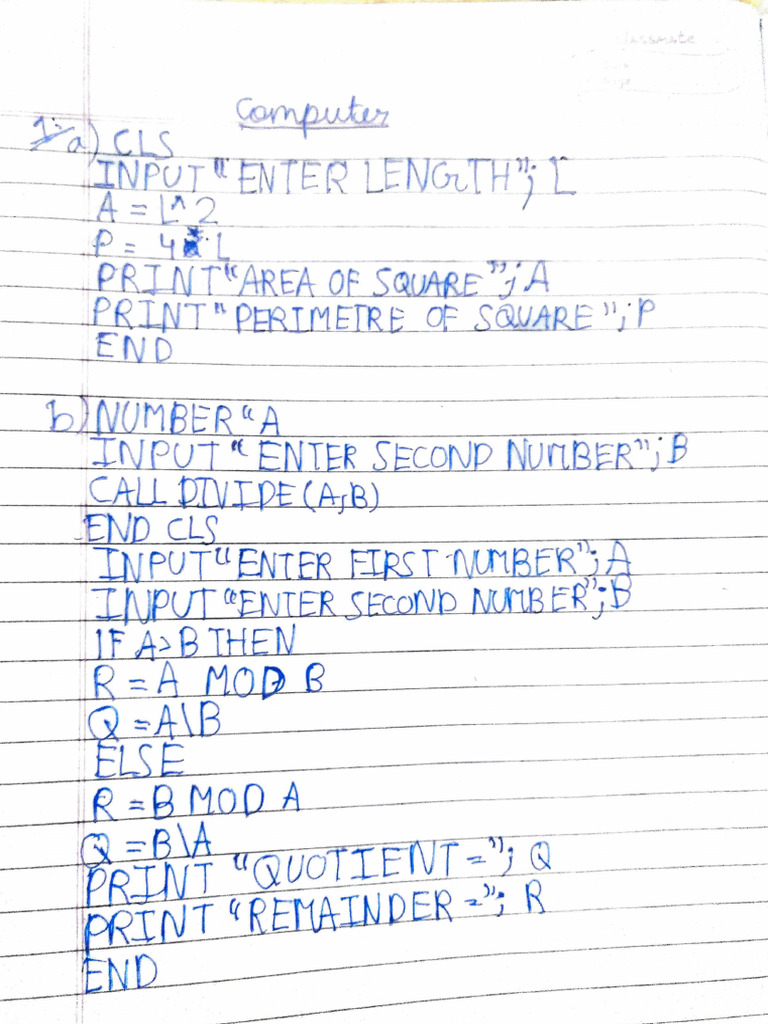 classmate
Computer
1. a) CLS
INPUT "ENTER LENGTH"; L
A = L^2
P = 4 * L
PRINT "AREA OF SQUARE"; A
PRINT "PERIMETRE OF SQUARE"; P
END
b) NUMBER "A
INPUT "ENTER SECOND NUMBER"; B
CALL DIVIDE (A,B)
END CLS
INPUT "ENTER FIRST NUMBER"; A
INPUT "ENTER SECOND NUMBER"; B
IF A>B THEN
R = A MOD B
Q = A\B
ELSE
R = B MOD A
Q = B\A
PRINT "QUOTIENT ="; Q
PRINT "REMAINDER ="; R
END